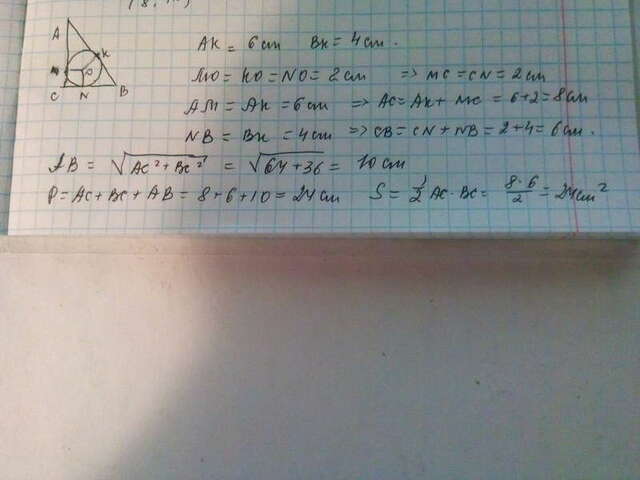 A
K
O
C N B
AK = 6 cm BK = 4 cm.
MO = KO = NO = 2 cm => MC = CN = 2 cm
AM = AK = 6 cm => AC = AK + MC = 6+2 = 8 cm
NB = BK = 4 cm => CB = CN + NB = 2+4 = 6 cm.
AB = √AC² + BC² = √64 + 36 = 10 cm
P = AC + BC + AB = 8 + 6 + 10 = 24 cm S = 1/2 AC · BC = 8·6/2 = 24 cm²